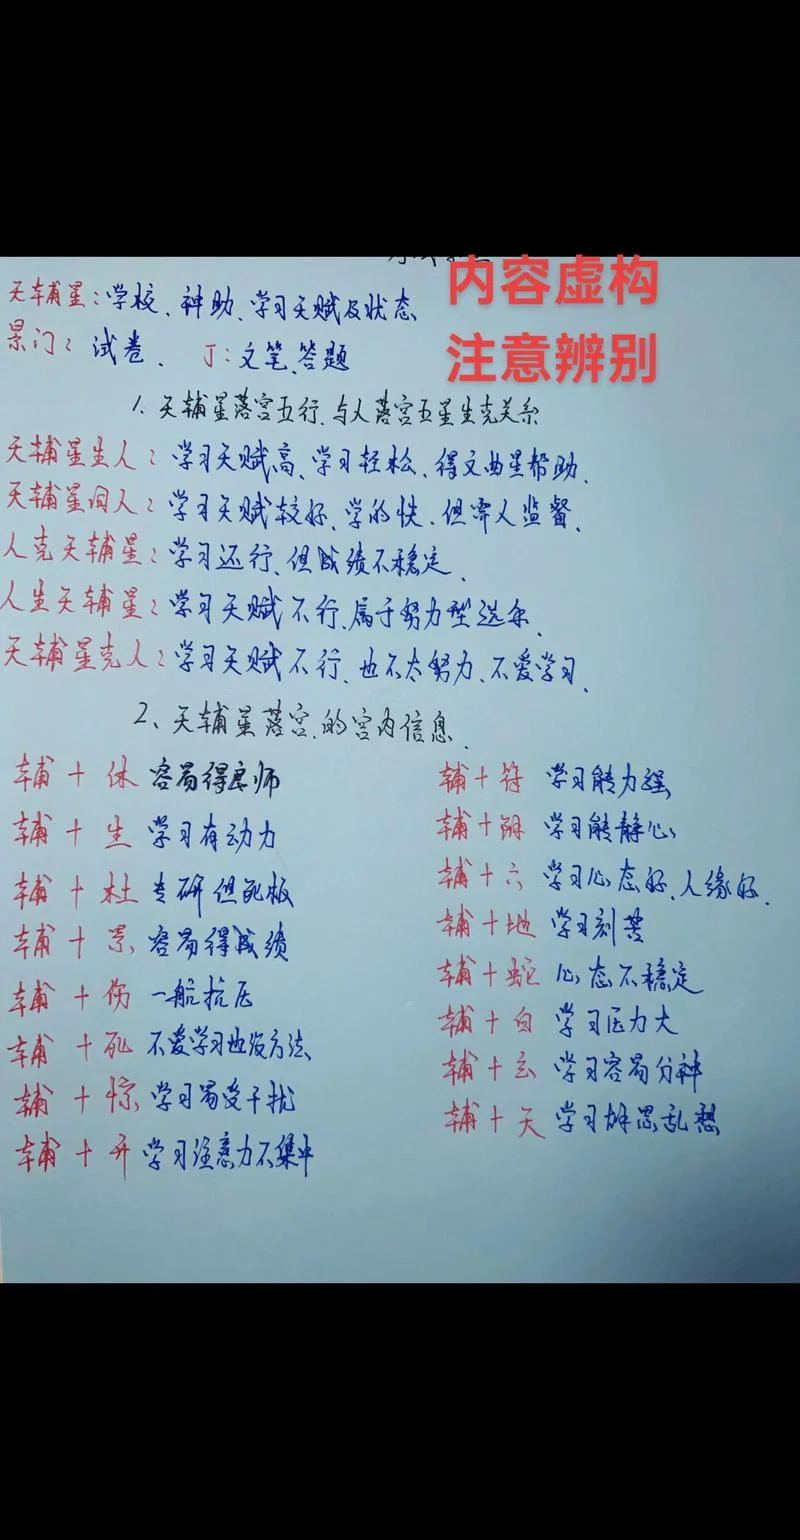 内容虚构
注意辨别
天辅星：学校、神助、学习天赋及状态
景门：试卷、 丁：文笔、答题
1、天辅星落宫五行、与人落宫五星生克关系
天辅星生人：学习天赋高、学习轻松、得文曲星帮助、
天辅星同人：学习天赋较好、学的快、但需人监督、
人克天辅星：学习还行、但成绩不稳定、
人生天辅星：学习天赋不行、属于努力型选手、
天辅星克人：学习天赋不行、也不太努力、不爱学习、
2、天辅星落宫、的宫内信息、
辅＋休 容易得良师
辅＋生 学习有动力
辅＋杜 专研但死板
辅＋景 容易得成绩
辅＋伤 一般抗压
辅＋死 不爱学习也没方法
辅＋惊 学习易受干扰
辅＋开 学习注意力不集中
辅＋符 学习能力强
辅＋阴 学习能静心
辅＋六 学习心态好、人缘好、
辅＋地 学习刻苦
辅＋蛇 心态不稳定
辅＋白 学习压力大
辅＋玄 学习容易分神
辅＋天 学习胡思乱想